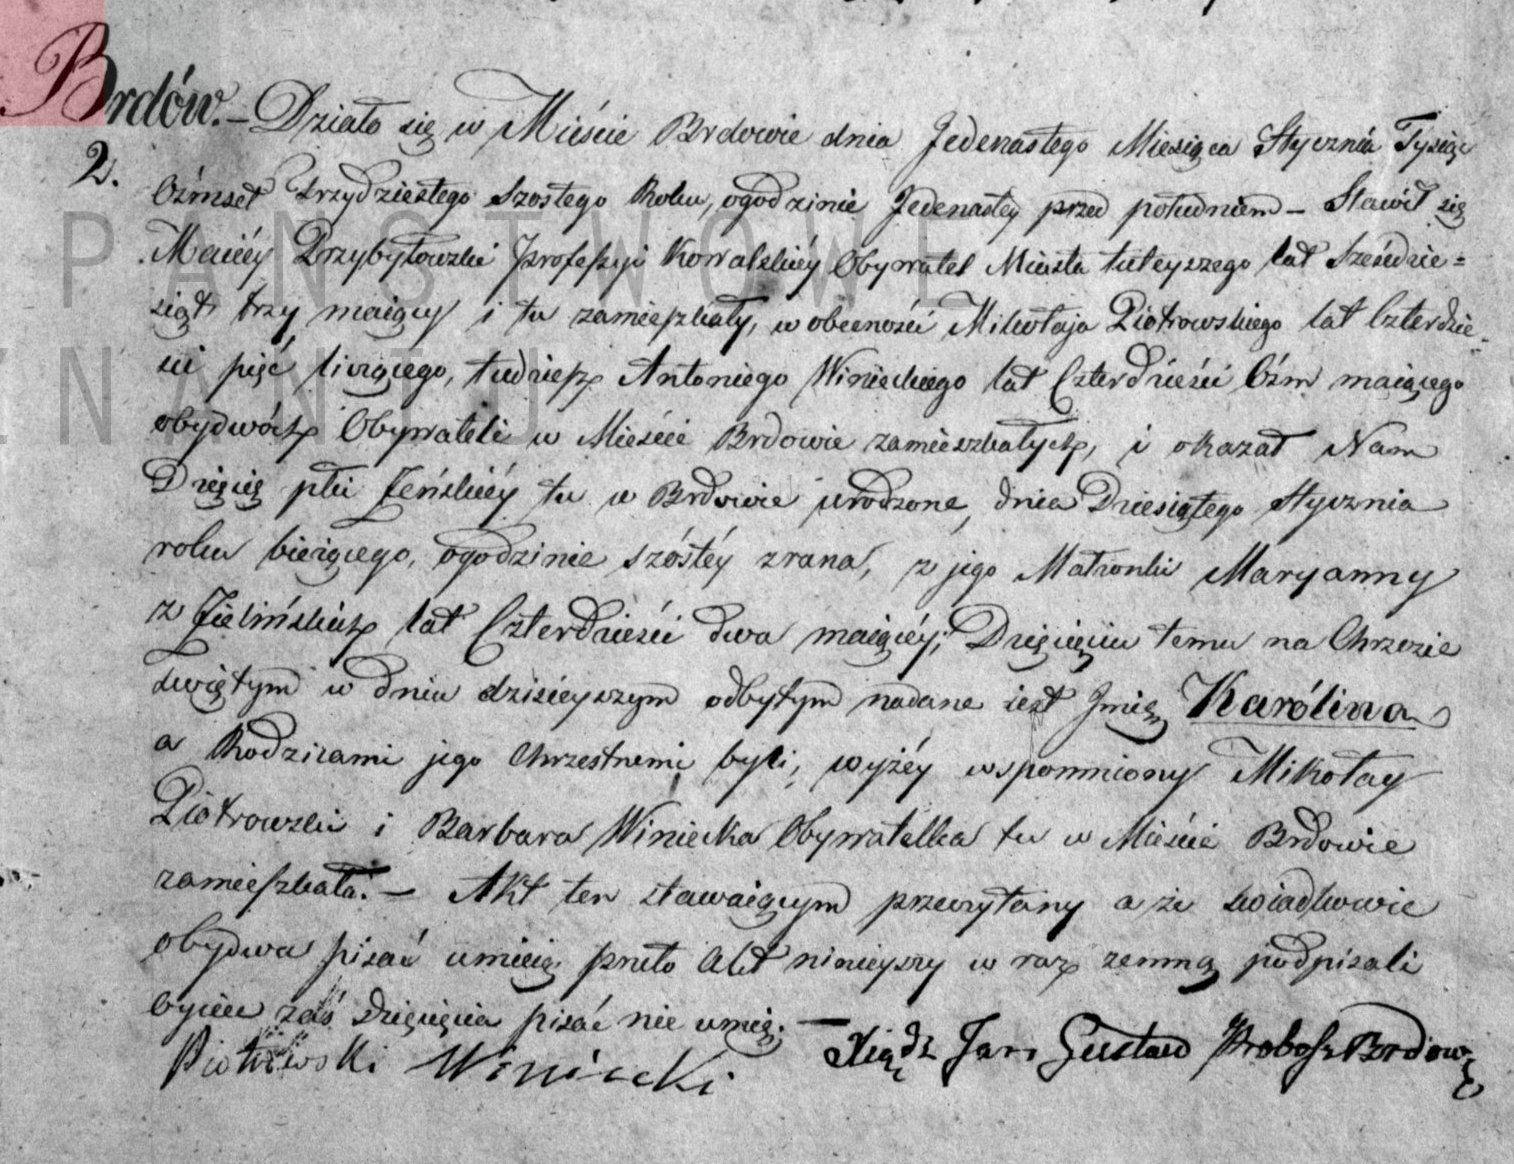 Brdów. – Działo się w Mieście Brdowie dnia Jedenastego Miesiąca Stycznia Tysiąc
2. Ośmset trzydziestego szostego Roku, ogodzinie Jedenastey przed południem – Stawił się
PAŃSTWOWE
Maciéy Przybyłowski Professyi Kowalskiéy Obywatel Miasta tuteyszego lat Sześćdzie=
siąt trzy maiący i tu zamieszkały, w obecności Mikołaja Piotrowskiego lat Czterdzie-
ZNANIU
ści pięć liczącego, tudzież Antoniego Winieckiego lat Czterdzieści Ośm maiącego
obydwóch Obywateli w Mieście Brdowie zamieszkałych, i okazał Nam
Dziecię płci Żeńskiéy tu w Brdowie urodzone, dnia Dziesiątego Stycznia
roku bieżącego, ogodzinie szóstéy zrana, z jego Małżonki Maryanny
z Zielińskich lat Czterdzieści dwa maiącéy; Dziecięciu temu na Chrzcie
świętym w dniu dzisieyszym odbytym nadane iest Imię Karólina
a Rodzicami jego Chrzestnemi byli, wyżéy wspomniony Mikołay
Piotrowski i Barbara Winiecka Obywatelka tu w Mieście Brdowie
zamieszkała. – Akt ten stawaiącym przeczytany a że świadkowie
obydwa pisać umieią, przeto Akt ninieyszy w raz zemną podpisali
oyciec zaś Dziecięcia pisać nie umie. –
Piotrowski Winiecki Xiądz Jan Gustaw Probosz Brdow